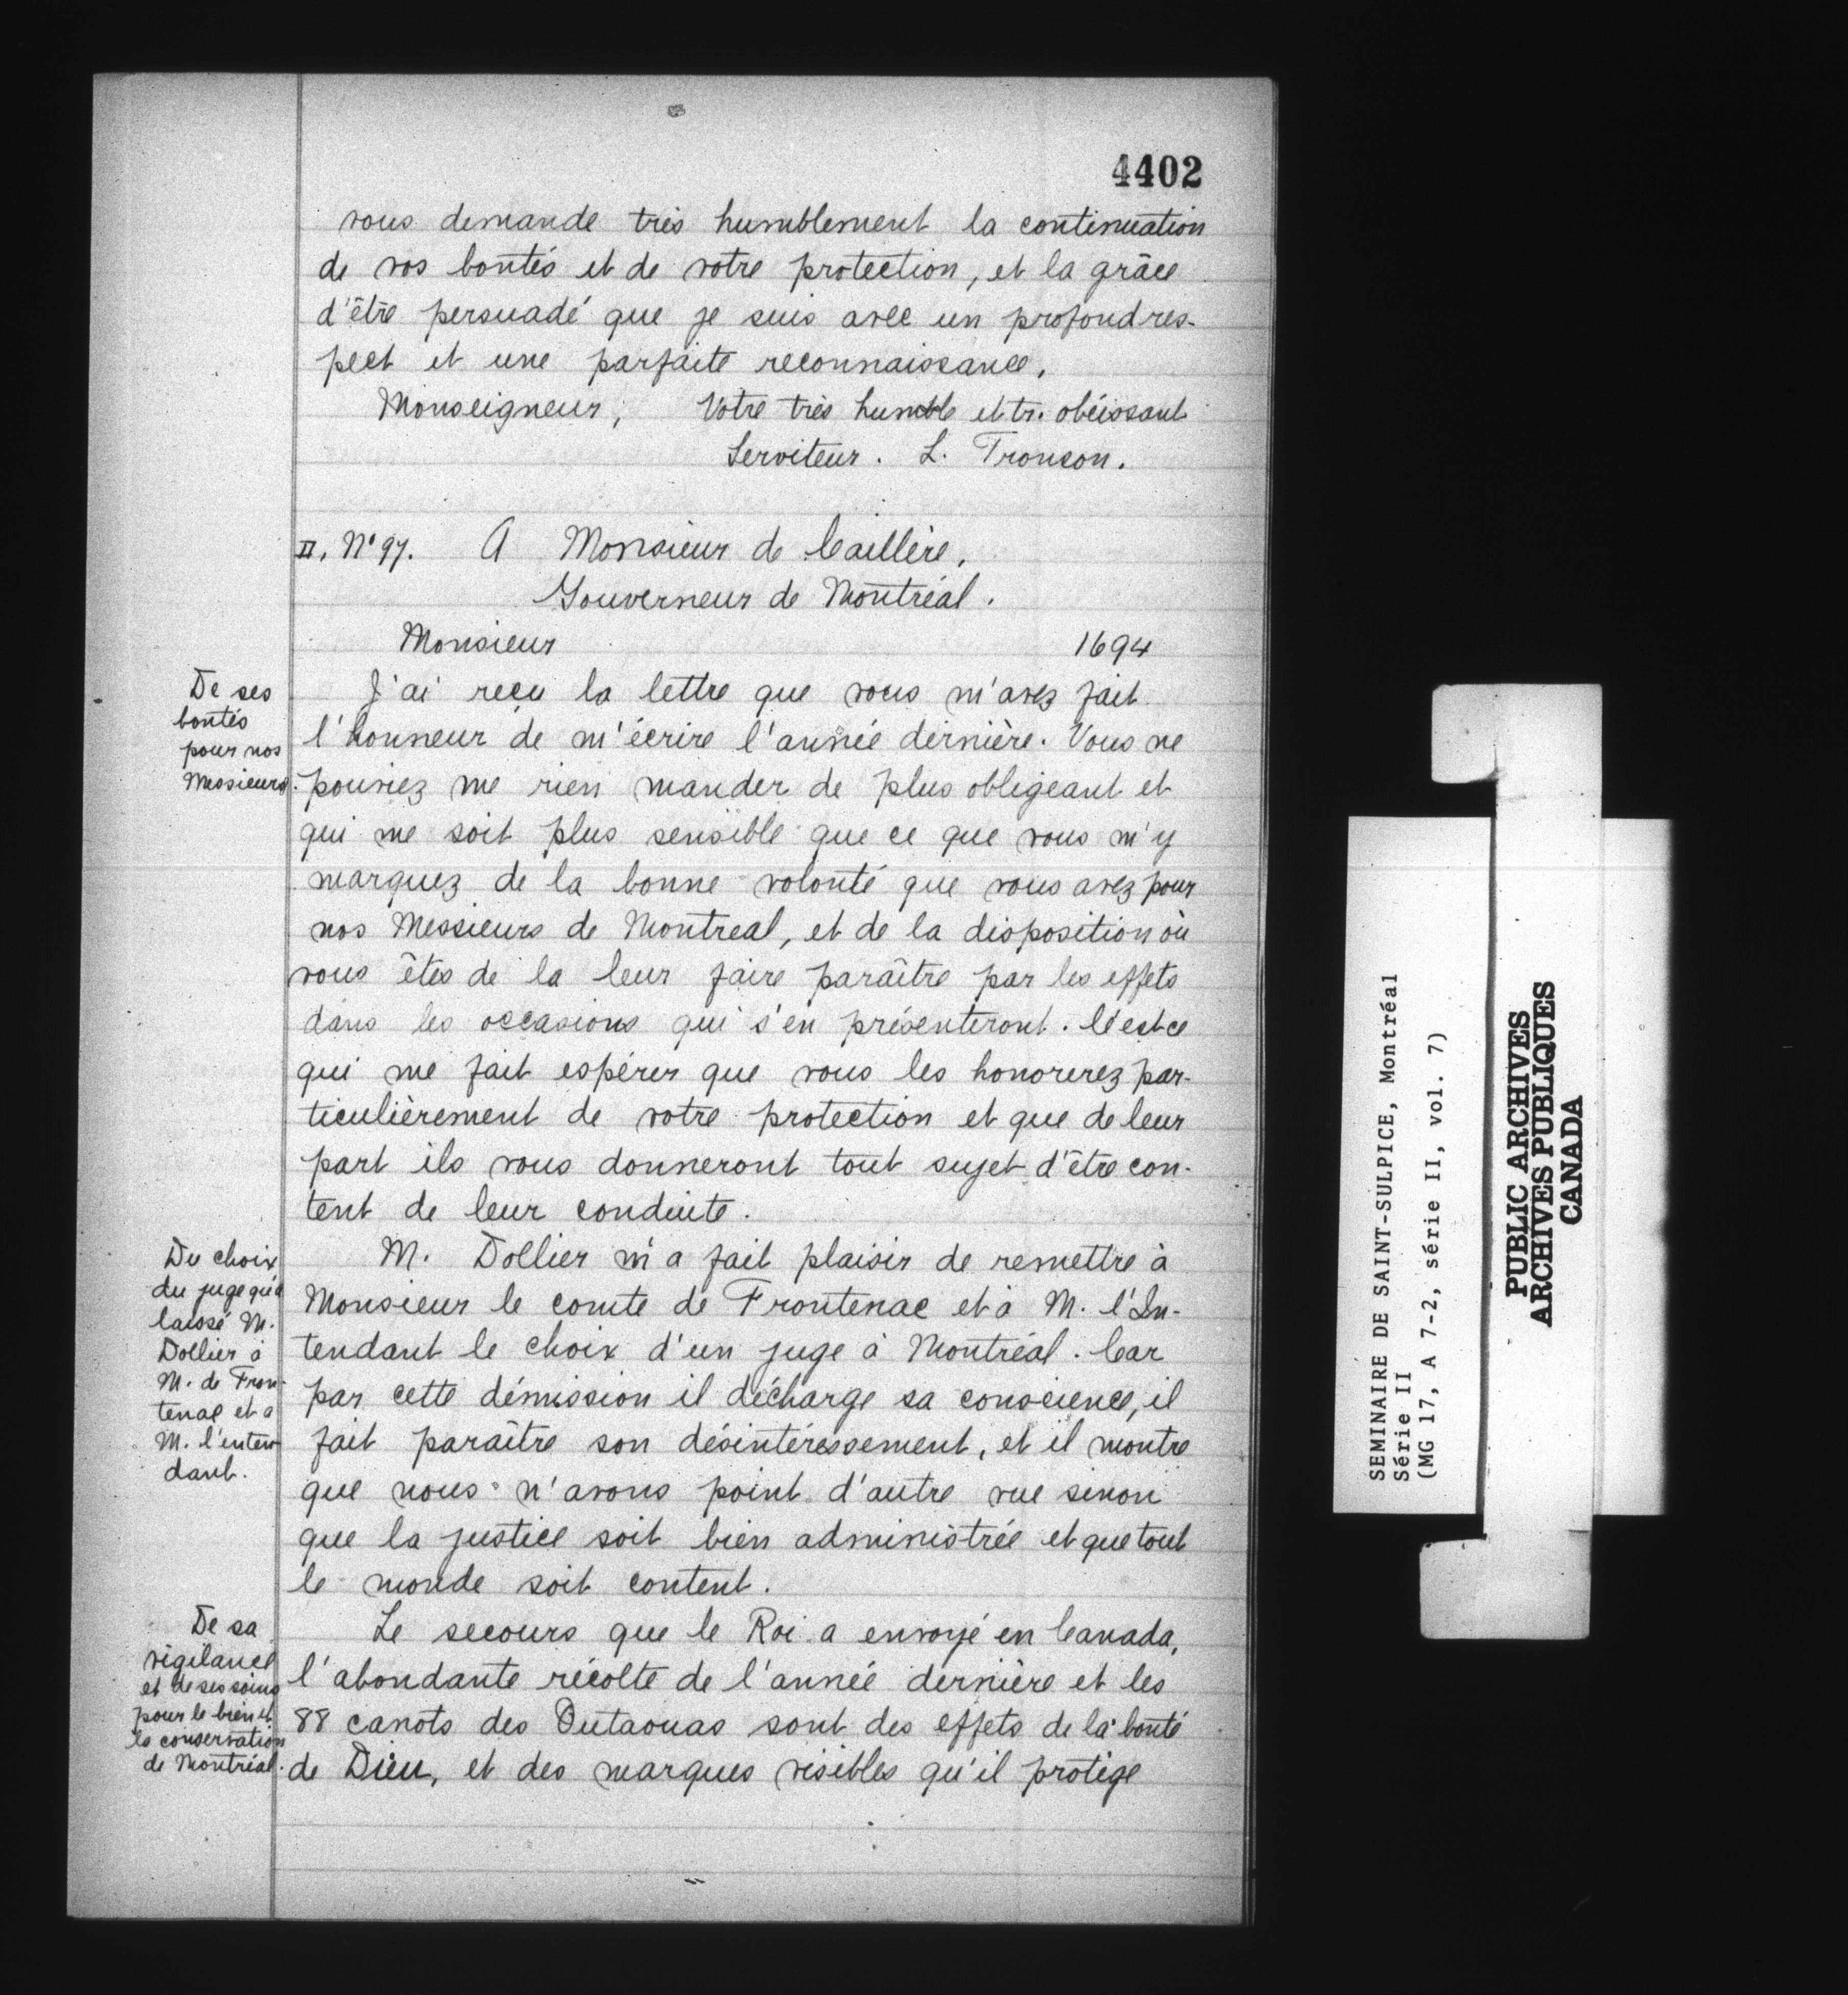 4402
vous demande très humblement la continuation
de vos bontés et de votre protection, et la grâce
d'être persuadé que je suis avec un profond res-
pect et une parfaite reconnaissance.
Monseigneur, Votre très humble et tr. obéissant
Serviteur. L. Tronson.
II, N° 97. A Monsieur de Caillère,
Gouverneur de Montréal.
Monsieur 1694
De ses
bontés
pour nos
Messieurs.
J'ai reçu la lettre que vous m'avez fait
l'honneur de m'écrire l'année dernière. Vous ne
pouviez me rien mander de plus obligeant et
qui me soit plus sensible que ce que vous m'y
marquez de la bonne volonté que vous avez pour
nos Messieurs de Montreal, et de la disposition où
vous êtes de la leur faire paraître par les effets
dans les occasions qui s'en présenteront. C'est ce
qui me fait espérer que vous les honorerez par-
ticulièrement de votre protection et que de leur
part ils vous donneront tout sujet d'être con-
tent de leur conduite.
Du choix
du juge qu'a
laissé M.
Dollier à
M. de Fron-
tenac et a
M. l'inten-
dant.
M. Dollier m'a fait plaisir de remettre à
Monsieur le comte de Frontenac et à M. l'In-
tendant le choix d'un juge à Montréal. Car
par cette démission il décharge sa conscience, il
fait paraître son désintéressement, et il montre
que nous n'avons point d'autre vue sinon
que la justice soit bien administrée et que tout
le monde soit content.
De sa
vigilance
et de ses soins
pour le bien et
la conservation
de Montréal.
Le secours que le Roi a envoyé en Canada,
l'abondante récolte de l'année dernière et les
88 canots des Outaouas sont des effets de la bonté
de Dieu, et des marques visibles qu'il protège
SEMINAIRE DE SAINT-SULPICE, Montréal
Série II
(MG 17, A 7-2, série II, vol. 7)
PUBLIC ARCHIVES
ARCHIVES PUBLIQUES
CANADA